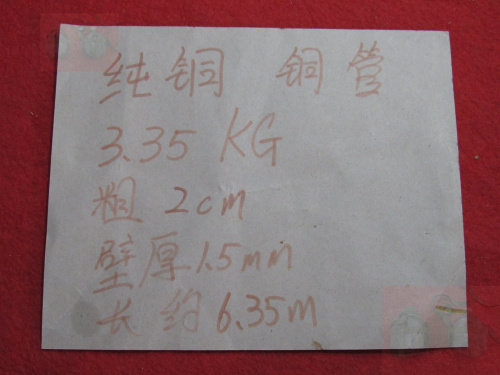 纯铜 铜管
3.35 KG
粗 2cm
壁厚1.5mm
长约6.35m